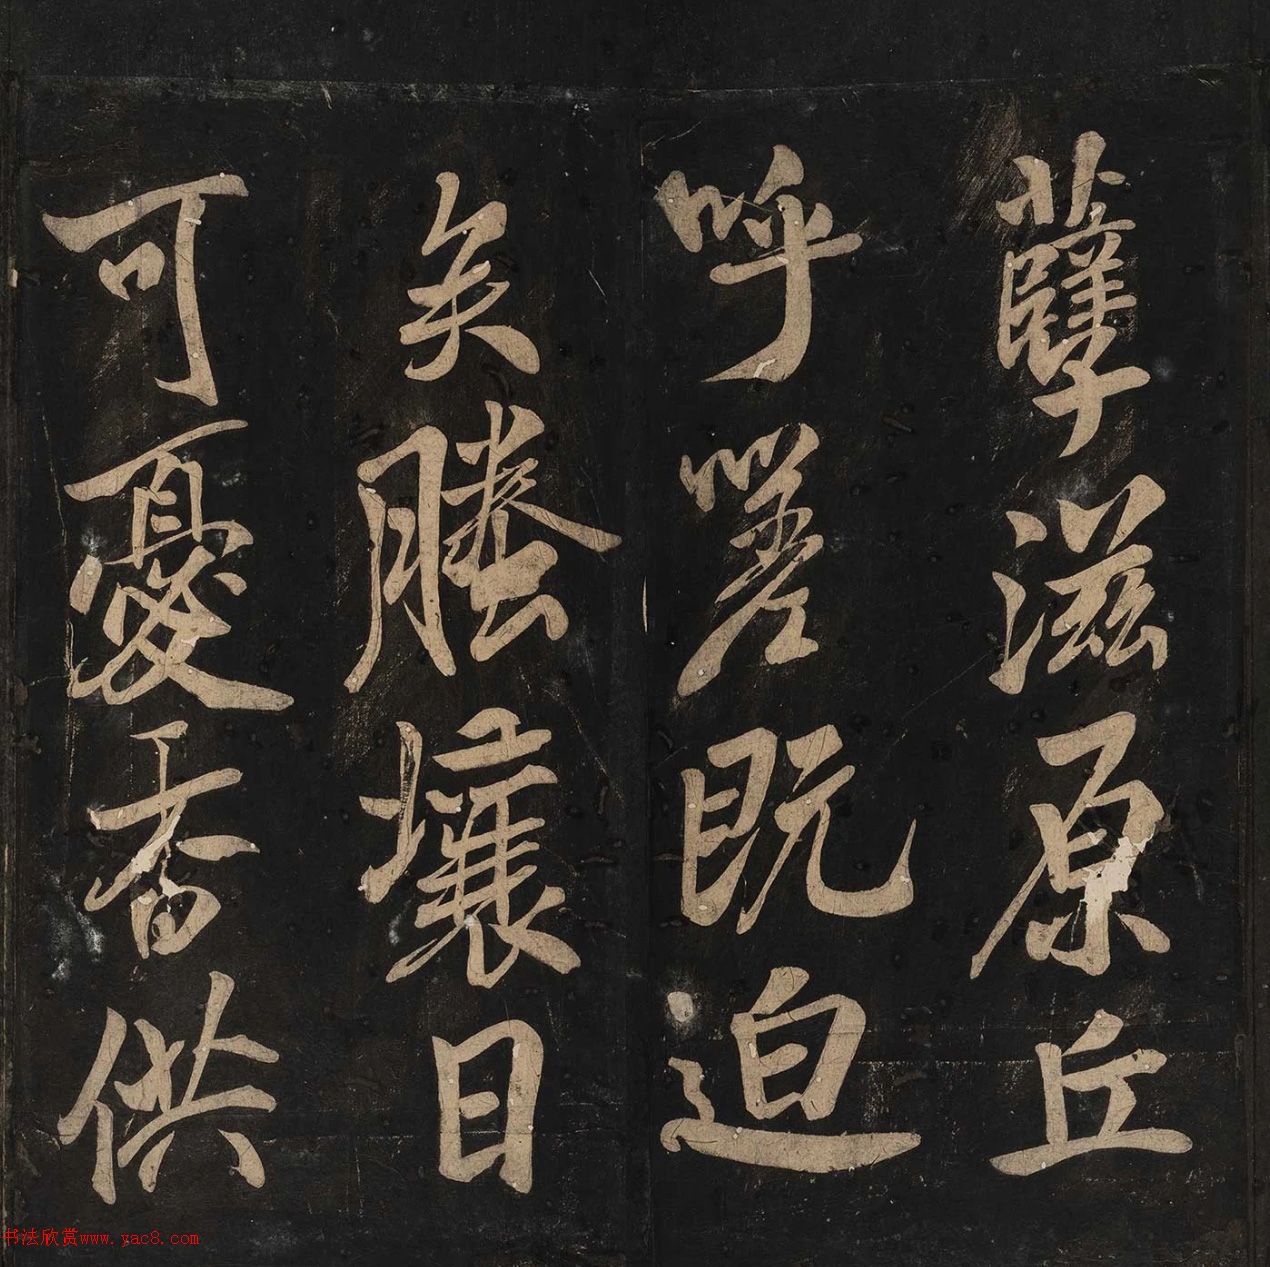 孽滋原丘
呼嗟既迫
矣塍壤日
可憂香供
书法欣赏www.yac8.com